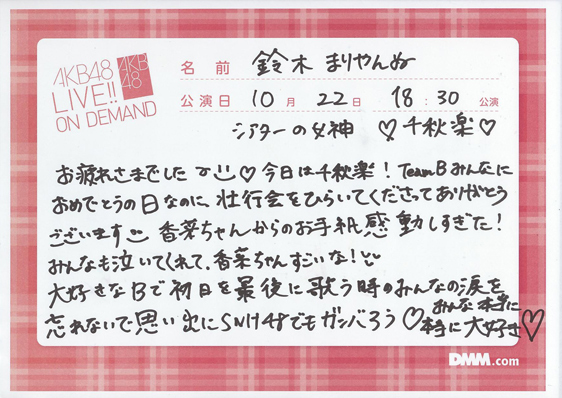 AKB48
LIVE!!
ON DEMAND
AKB
48
名前 鈴木 まりやんぬ
公演日 10月 22日 18:30 公演
シアターの女神 ♡千秋楽♡
お疲れさまでした ♡今日は千秋楽！TeamBみんなに
おめでとうの日なのに、壮行会をひらいてくださってありがとう
ございます 香菜ちゃんからのお手紙感動しすぎた！
みんなも泣いてくれて、香菜ちゃんすごいな！
大好きなBで初日を最後に歌う時のみんなの涙を
忘れないで思い出にSNH48でもガンバろう♡
みんな本当に
本当に大好き♡
DMM.com